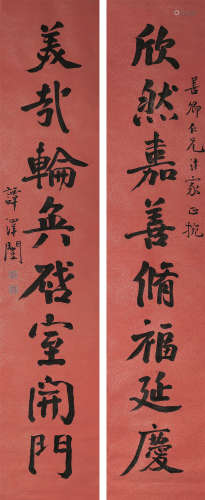 欣然嘉善脩福延慶
善卿仁兄法家正挽
美哉輪奐啓室開門
譚澤闓